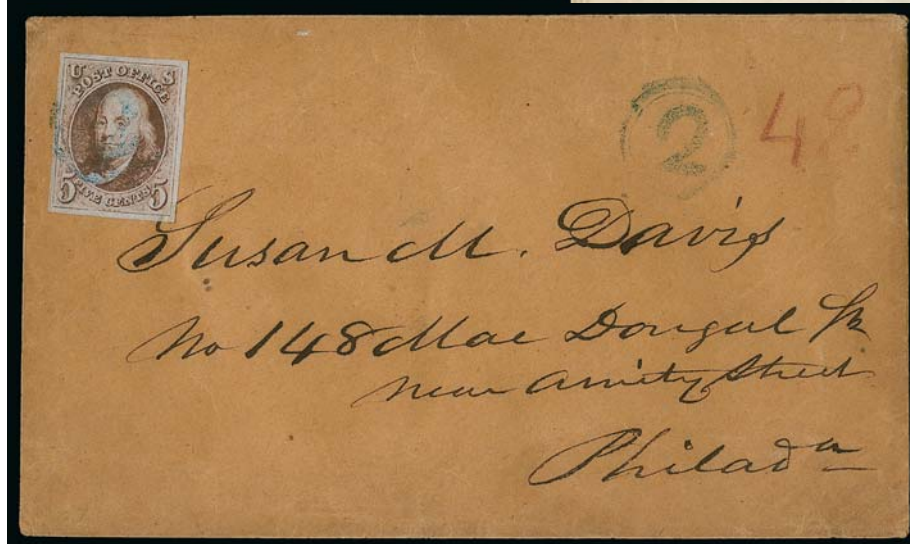 U S
POST OFFICE
5 FIVE CENTS 5
2
48
Susan M. Davis
No 148 Mac Dougal St
near Amity Street
Philada